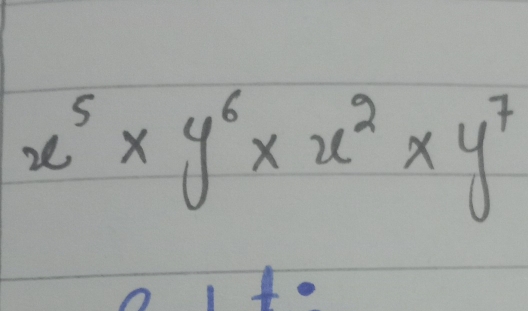 x⁵ × y⁶ × x² × y⁷